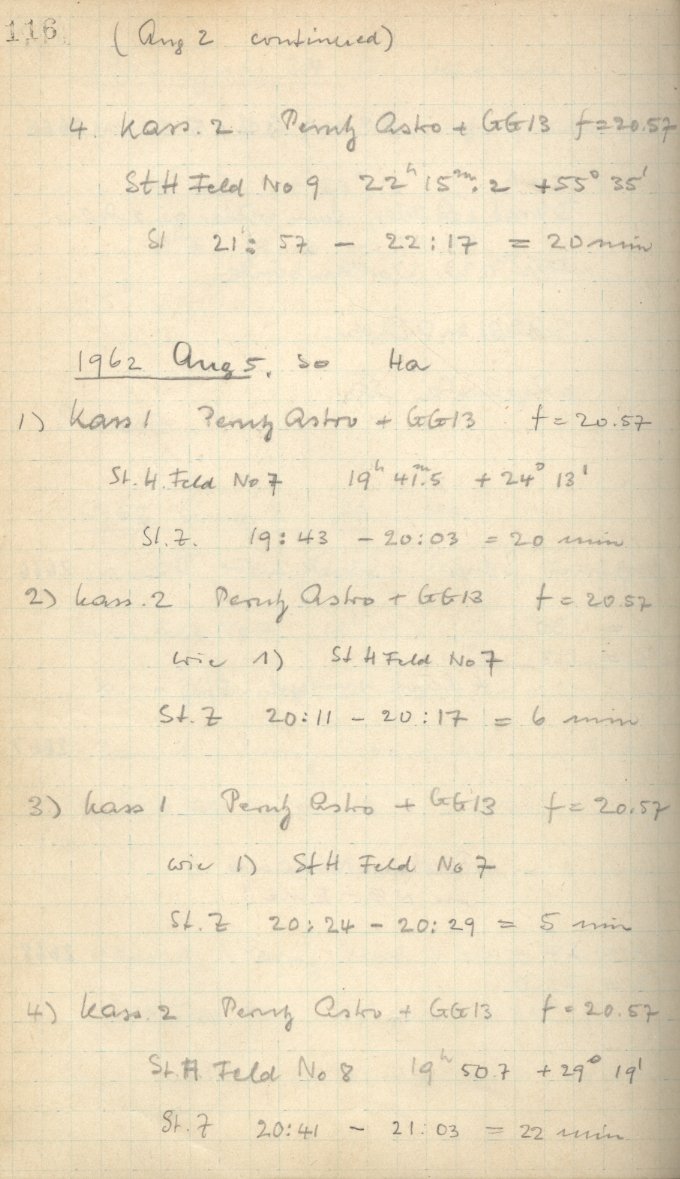 116 (Aug 2 continued)
4. Kass. 2 Perutz Astro + GG13 f=20.57
StH Feld No 9 22ʰ 15ᵐ.2 +55° 35'
St 21:57 - 22:17 = 20 min
1962 Aug 5. So Ha
1) Kass 1 Perutz Astro + GG13 f=20.57
St.H. Feld No 7 19ʰ 41ᵐ.5 +24° 13'
St.Z. 19:43 - 20:03 = 20 min
2) Kass. 2 Perutz Astro + GG13 f=20.57
wie 1) StH Feld No 7
St.Z 20:11 - 20:17 = 6 min
3) Kass 1 Perutz Astro + GG13 f=20.57
wie 1) StH Feld No 7
St.Z 20:24 - 20:29 = 5 min
4) Kass. 2 Perutz Astro + GG13 f=20.57
St.H Feld No 8 19ʰ 50.7 +29° 19'
St.Z 20:41 - 21:03 = 22 min